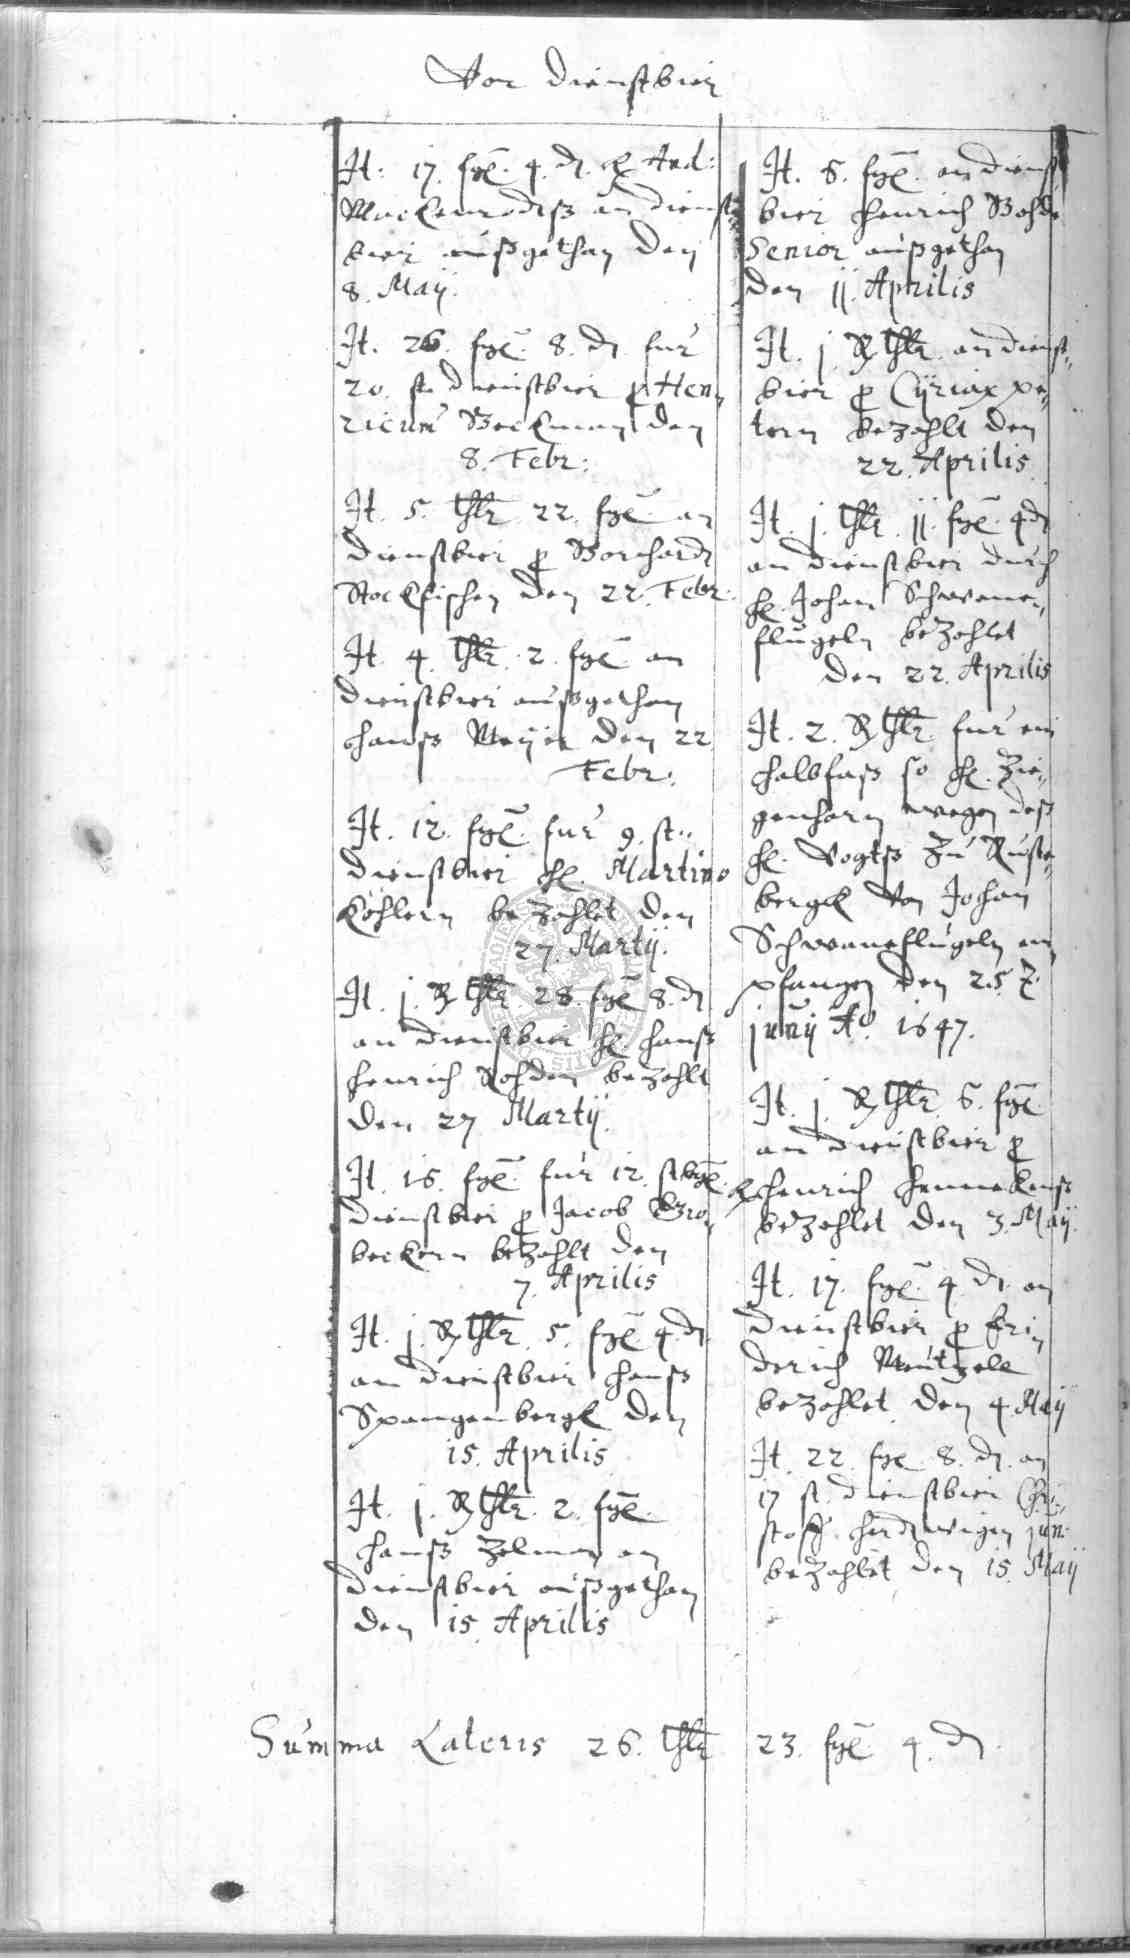 Vor dienstbier
It. 17. fgl. 4. d. H. And:
Mackenrodtß an dienst¬
bier außgethan den
8. Maij.
It. 26. fgl. 8. d. fur
20. st. dienstbier p Hen¬
ricum Beckman den
8. Febr:
It. 5. thlr 22. fgl. an
dienstbier p Borchardt
Stockfischen den 22. Febr:
It. 4. thlr. 2. fgl. an
dienstbier außgethan
Hanß Meyer den 22
Febr:
It. 12. fgl. fur 9. st.
dienstbier H. Martino
Köhlern bezahlet den
27. Martij.
It. j. Rthlr 28. fgl. 8. d
an dienstbier H. Hanß
Henrich Rohden bezahlt
den 27 Martij.
It. 16. fgl. fur 12. stbg.
dienstbier p Jacob Gro¬
beckern bezahlt den
7. Aprilis
It. j. Rthlr. 5. fgl. 4. d
an dienstbier Hanß
Spangenbergk den
15. Aprilis
It. j. Rthlr. 2. fgl.
Hanß Zelman an
dienstbier außgethan
den 15 Aprilis
It. 6. fgl. an dienst
bier Henrich Bohde
Senior außgethan
den jj. Aprilis
It. j Rthlr. an dienst¬
bier p Cyriax Pe¬
tern bezahlt den
22. Aprilis
It. j. thlr. jj. fgl. 4 d
an dienstbier durch
H. Johan Schwane¬
flugeln bezahlet
den 22. Aprilis
It. 2. Rthlr fur ein
halbfaß so H. Zie¬
genhorn wegen deß
H. Vogtß zu Ruste¬
bergk von Johan
Schwaneflugeln em
pfangen den 25 t.
junij Ao. 1647.
It. j. Rthlr. 6. fgl.
an dienstbier p
H. Henrich Hennekenß
bezahlet den 3. Maij.
It. 17. fgl. 4. d. an
dienstbier p Fri¬
derich Mentzell
bezahlet den 4. Maij
It. 22. fgl. 8. d. an
17 st. dienstbier Chri¬
stoff Hardtwigen jun:
bezahlet den 15. Maij
Summa Lateris 26. thlr 23. fgl. 4. d.